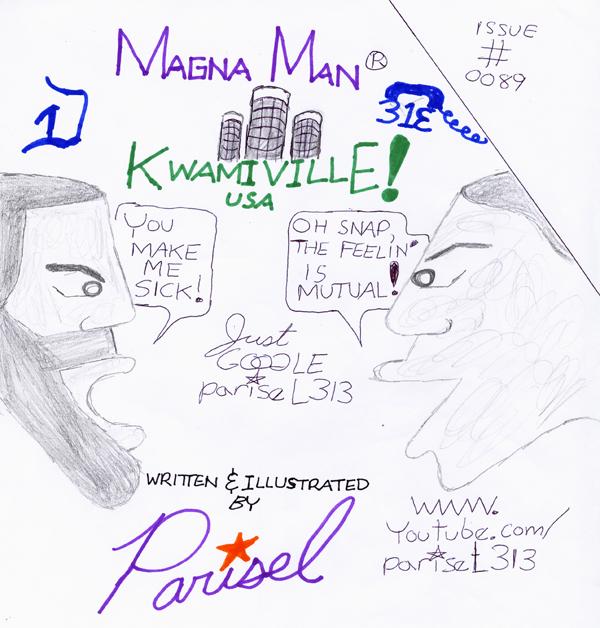 MAGNA MAN®
ISSUE
#
0089
313
KWAMIVILLE!
USA
YOU
MAKE
ME
SICK!
OH SNAP,
THE FEELIN'
IS
MUTUAL!
Just
GOOGLE
pariseL313
WRITTEN & ILLUSTRATED
BY
Parisel
WWW.
YouTube.com/
pariseL313